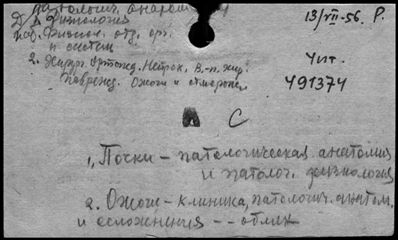 патологич. анатомия
Д. Физиология
пат. Физиол. отд. орг.
и систем
2. Хирург. Ортопед. Нейрох. В.-п. хир.
поврежд. Ожоги и отморож.
13/VII-56. Р.
Чит.
491374
А С
1, Почки – патологическая анатомия
и патолог. физиология
2. Ожоги – клиника, патологич. анатом.
и осложнения --